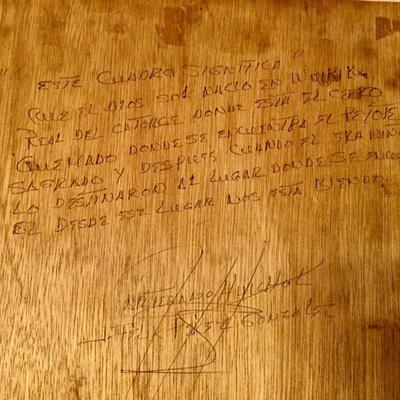 " ESTE CUADRO SIGNIFICA "
QUE EL DIOS SOL NACIO EN WIRIKU
REAL DEL CATORCE DONDE ESTA EL CERRO
QUEMADO DONDE SE ENCUENTRA EL PEYOTE
SAGRADO Y DESPUES CUANDO EL ERA NINO
LO DESTINARON AL LUGAR DONDE SE ENCUE
EL DESDE ESE LUGAR NOS ESTA VIENDO.
ARTESANO HUICHOL
FELIX PEREZ GONZALEZ